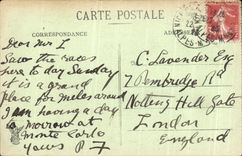 CARTE POSTALE
CORRESPONDANCE
Dear Mrs L
Saw the races
here to day Sunday
it is a grand
place for miles around
I am having a day
to morrow at
Monte Carlo
yours P
C. Lavender Esq
7 Pembridge Rd
Notting Hill Gate
London
England